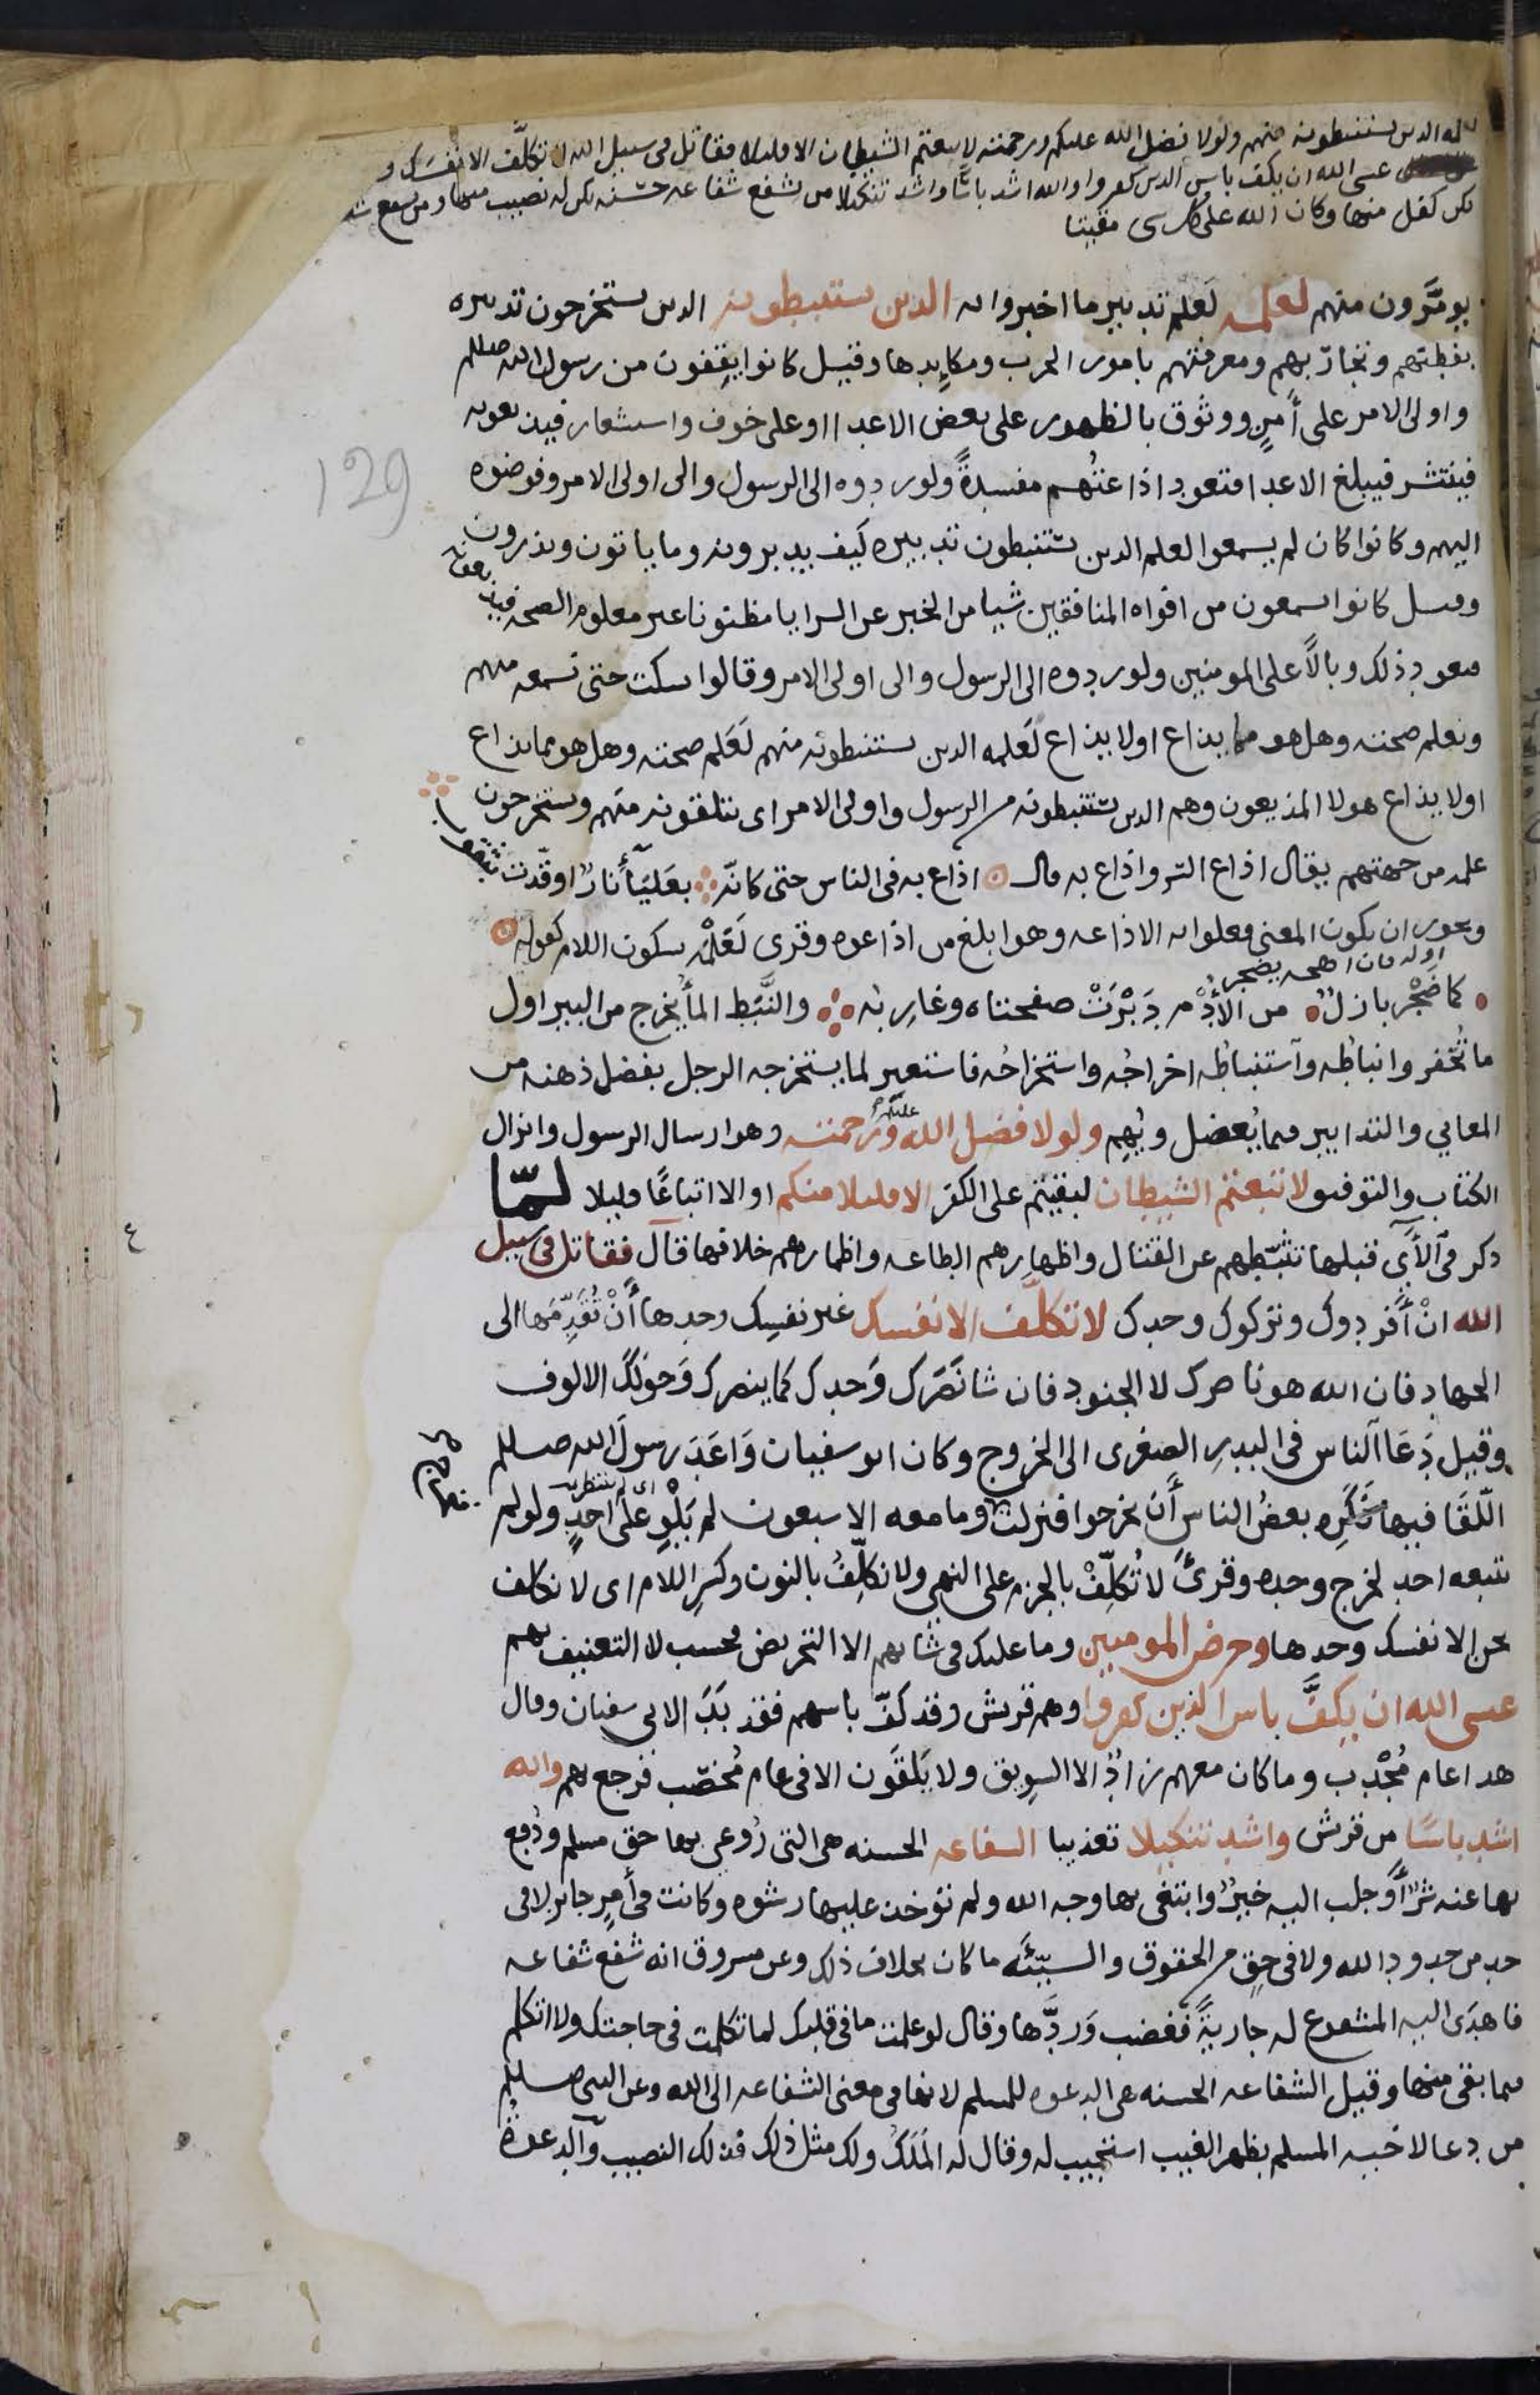 لعلمه الدين يستنبطونه منهم ولولا فضل الله عليكم ورحمته لاتبعتم الشيطان الا قليلا فقاتل في سبيل الله لا تكلف الا نفسك و
عسى الله ان يكف باس الدين كفروا والله اشد باسا واشد تنكيلا من يشفع شفاعه حسنه يكن له نصيب منها ومن يشفع شفا
يكن كفل منها وكان الله على كل شي مقيتا
129
يؤمرون منهم لعلمه لعلم تدبير ما اخبروا به الدين يستنبطونه الدين يستخرجون تدبيره
بفطنتهم وتجاربهم ومعرفتهم بامور الحرب ومكايدها وقيل كانوا يقفون من رسول الله صلعم
واولى الامر على أمن ووثوق بالظهور على بعض الاعدا او على خوف واستشعار فيذيعونه
فينتشر فيبلغ الاعدا فتعود اذاعتهم مفسدة ولو ردوه الى الرسول والى اولى الامر وفوضوه
اليهم وكانوا كان لم يسمعوا لعلم الدين يستنبطون تدبيره كيف يدبرونه وما ياتون ويذرون
وقيل كانوا يسمعون من افواه المنافقين شيا من الخبر عن السرايا مظنونا غير معلوم الصحه فيذيعونه
فيعود ذلك وبالا على المومنين ولو ردوه الى الرسول والى اولى الامر وقالوا نسكت حتى نسمعه منهم
ونعلم صحته وهل هو مما يذاع اولا يذاع لعلمه الدين يستنبطونه منهم لعلم صحته وهل هو مما يذاع
اولا يذاع هولا المذيعون وهم الدين يستنبطونه من الرسول واولى الامر اى يتلقونه منهم ويستخرجون
علمه من جهتهم يقال اذاع السر واذاع به قال اذاع به فى الناس حتى كانه بعليا نار اوقدت بثقوب
ويجوز ان يكون المعنى فعلوا به الاذاعه وهو ابلغ من اذاعوه وقرى لعلمه بسكون اللام كقوله
اوله فان اهجه يضجر
كما ضجر بازل من الأدم دبرت صفحتاه وغاربه والنبط الما يخرج من البير اول
ما تحفر وانباطه واستنباطه اخراجه واستخراجه فاستعير لما يستخرجه الرجل بفضل ذهنه من
المعاني والتدابير فيما يعضل ويهم ولولا فضل الله عليكم ورحمته وهو ارسال الرسول وانزال
الكتاب والتوفيق لاتبعتم الشيطان لبقيتم على الكفر الا قليلا منكم او الا اتباعا قليلا لما
ذكر في الآي قبلها تثبطهم عن القتال واظهارهم الطاعه واضمارهم خلافها قال فقاتل في سبيل
الله ان أفردوك وتركوك وحدك لا تكلف الا نفسك غير نفسك وحدها أن تقدمها الى
الجهاد فان الله هو ناصرك لا الجنود فان شا نصرك وحدك كما ينصرك وحولك الالوف
وقيل دعا الناس في البدر الصغرى الى الخروج وكان ابو سفيان واعد رسول الله صلعم
اللقا فيها فكره بعض الناس أن يخرجوا فنزلت وما معه الا سبعون لم يلو على احد ولو لم
اى لم ينتظر
يتبعه احد لخرج وحده وقرئ لا تكلف بالجزم على النهي ولا نكلف بالنون وكسر اللام اى لا نكلف
نحن الا نفسك وحدها وحرض المومنين وما عليك في شانهم الا التحريض فحسب لا التعنيف بهم
عسى الله ان يكف باس الذين كفروا وهم قريش وقد كف باسهم فقد بدا لابى سفيان وقال
هدا عام مجدب وما كان معهم زاد الا السويق ولا يلقون الا في عام مخصب فرجع بهم والله
اشد باسا من قريش واشد تنكيلا تعذيبا الشفاعه الحسنه هى التى روعي بها حق مسلم ودفع
بها عنه شر أو جلب اليه خير وابتغى بها وجه الله ولم تؤخذ عليها رشوه وكانت في أمر جائز لا فى
حد من حدود الله ولا في حق من الحقوق والسيئه ما كان بخلاف ذلك وعن مسروق انه شفع شفاعه
فاهدى اليه المشفوع له جارية فغضب وردها وقال لو علمت ما في قلبك لما تكلمت في حاجتك ولا اتكلم
فيما بقى منها وقيل الشفاعه الحسنه هى الدعوه للمسلم لانها في معنى الشفاعه الى الله وعن النبى صلعم
من دعا لاخيه المسلم بظهر الغيب استجيب له وقال له الملك ولك مثل ذلك فذلك النصيب والدعوة